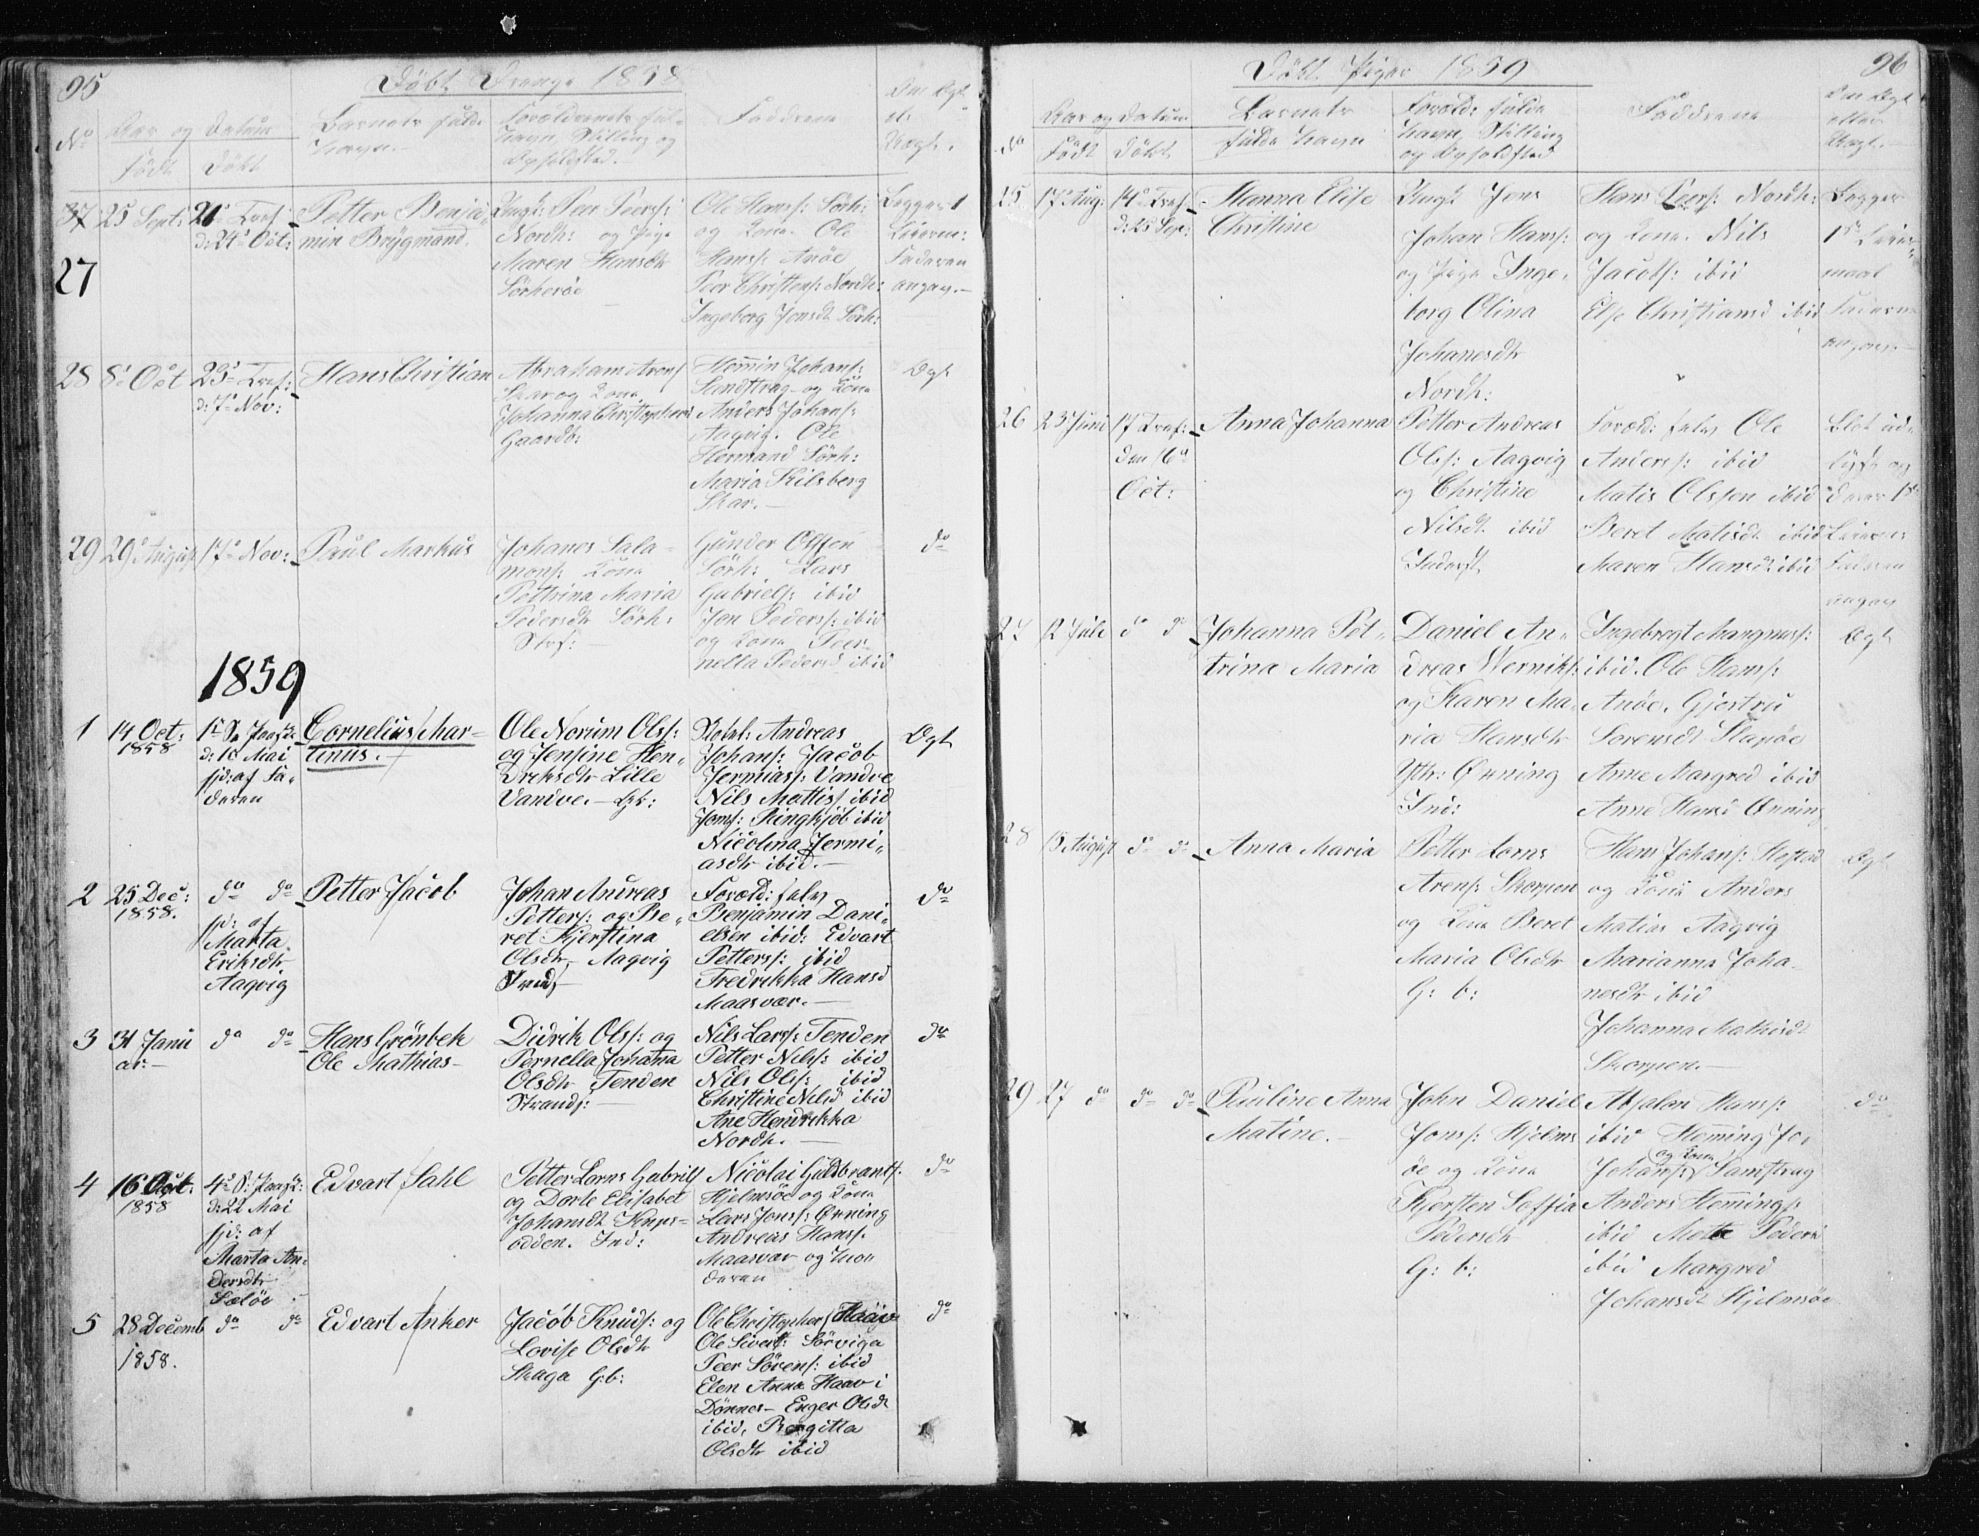 95
Döbt Drenge 1858
No
Aar og Datum
Födt
Döbt
Barnets fulde
Navn.
Forældrenes ful-
Navn, Stilling og
Opholdsted.
Faddrene
Om Ægt.
el:
Uægt.
37
27
25 Sept:
21de Tref:
d: 24de Oct:
Petter Benja-
min Brygmand.
Ungk: Peer Peers:
Nordh: og Pige
Maren Hansdtr
Sörherøe
Ole Hans: Sörh:
og Kone. Ole
Hans: Anöe
Peer Christens: Nordh:
Ingeborg Jonsdt Sörh:
Begges 1
Leierm:
Faderen
angav.
28
8de Oct
23de Tref:
d: 7de Nov:
Hans Christian
Abraham Arons
Skar og Kone
Johanna Christophers
Gaardb:
Hemin Johans:
Sandstrag og Kone
Anders Johans:
Aagvig. Ole
Hermand Sörh:
Maria Kilsberg
Skar.
Ægt
29
29de August
17de Nov:
Paul Markus
Johanes Sala-
mons: Kone
Pettrina Maria
Pedersdtr Sörh:
Strf:
Gunder Olsen
Sörh: Lars
Gabriels: ibid
Jon Peders: ibid
og Kone Peer-
nella Pedersd ibid
do
1859
1
14 Oct:
1858
d: 18 Mai
hjd: af Fa-
deren
Cornelius Mar-
tinus.
Ole Norum Ols:
og Jensine Hen-
driksdtr Lille
Vandve. Gb:
Andreas
Johans: Jacob
Jermias: Vandve
Nils Mattis: ibid
Joms: Ringkjöb ibid
Nicolina Jermi-
asdtr ibid.
Ægt
2
25 Dec:
1858.
do do
hjd: af
Marta
Eriksdtr
Aagvig
Petter Jacob
Johan Andreas
Petters: og Be-
ret Kjerstina
Olsdtr Aagvig
Foræld: selv
Benjamin Dani-
elsen ibid: Edvart
Petters: ibid
Fredrikka Hansd
Maasvær.
do
3
31 Janu
ar:
do do
Hans Grönbek
Ole Mathias
Didrik Ols: og
Pernella Johanna
Olsdtr Tenden
Strands:
Nils Lars: Tenden
Petter Nils: ibid
Nils Ols: ibid
Christine Nilsd ibid
Ane Hendrikka
Nordh.
do
4
16 Oct:
1858
d: 22 Mai
hjd: af
Marta An-
dersdtr
Sæløe
Edvart Sahl
Petter Lorns Gabriels
og Dorte Elisabet
Johansdt Knps-
odden. Ind:
Nicolai Guldbrants:
Hjelmsöe og Kone
Lars Jons: Ønning
Andreas Hans:
Maasvær og Mo-
deren
do
5
28 Decemb
1858.
do do
Edvart Anker
Jacob Knuds: og
Lovise Olsdtr
Skaga G:b:
Ole Christophers Haav
Ole Siverts: Sörviga
Peer Sörens: ibid
Elen Anna Haav i
Dönnes Enger Olsdt
ibid, Bergitta
Olsdtr ibid
do
96
Döbt Piger 1859
No
Aar og Datum
Födt
Döbt
Barnets
fulde Navn
Foræld: fulde
Navn, Stilling
og Opholdsted
Faddrene
Om Ægt
eller
Uægt.
25
17de Aug:
14de Tref
d: 25 Sep:
Hanna Elise
Christine
Ungk Jens
Johan Hans:
og Pige Inge-
borg Olina
Johanesdtr
Nordh:
Hans Peers: Nordh:
og Kone. Nils
Jacobs: ibid
Else Christiansd ibid
Begges
1ste Leier-
maal
Faderen
angav
26
23 Juni
17 Tref:
den 16de
Oct:
Anna Johanna
Petter Andreas
Ols: Aagvig
og Christine
Nilsdt ibid
Inderst
Foræld: selv, Ole
Anders: ibid
Matis Olssen ibid
Beret Matisdt ibid
Maren Hansdt ibid
Leierm:
Faderen
angav
27
12 Juli
do do
Johanna Pet-
trina Maria
Daniel An-
dreas Werniks:
og Karen Ma-
ria Hansdtr
Ythr: Ønning
Ind:
Ingebregt Mangnus:
ibid. Ole Hans:
Anöe. Gjertru
Sörensdt Slapöe
Anne Margred ibid
Anne Hansd Ønning
Ægt
28
18 August
do do
Anna Maria
Petter Lorns
Arens: Skorpen
og Kone Beret
Maria Olsdtr
G: b:
Hans Johans: Hestad
og Kone Anders
Matias Aagvig
Marianna Joha-
nesdtr ibid
Johanna Mathisdt
Skorpen.
Ægt
29
27 do
do do
Pauline Anna
Matine.
John Daniel
Jons: Hjelms
öe og Kone
Kjersten Soffia
Pedersdtr
G: b:
Absalon Hans:
ibid Heming Jo-
Johans: og Kone Sanstrag
Anders Hemings:
ibid Mette Pedersd
ibid Margred
Johansdt Hjelmsöe
do